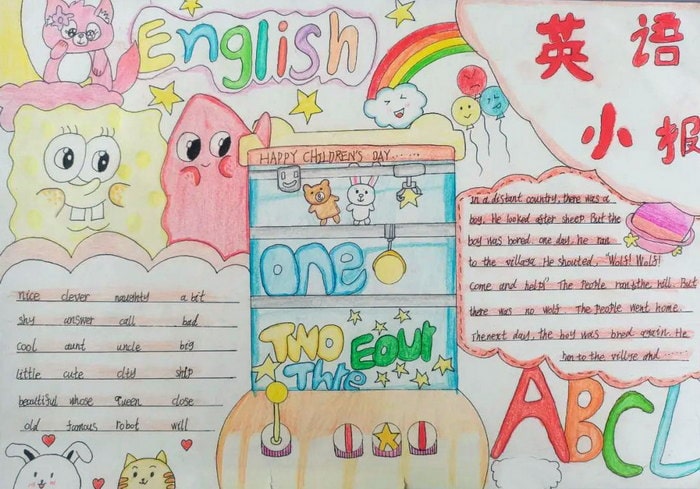 English
英语
小报
HAPPY CHILDREN'S DAY......
One
Two Eour
Thre
In a distant country, there was a
boy. He looked after sheep But the
boy was bored. one day, he ran
to the village. He shouted, "Wolf! Wolf!
Come and help!" The people ran the hill. But
there was no wolf. The people went home.
The next day, the boy was bored again. He
ran to the village and ......
nice clever naughty a bit
shy answer call bad
cool aunt uncle big
little cute city ship
beautiful whose queen close
old famous robot well
ABC